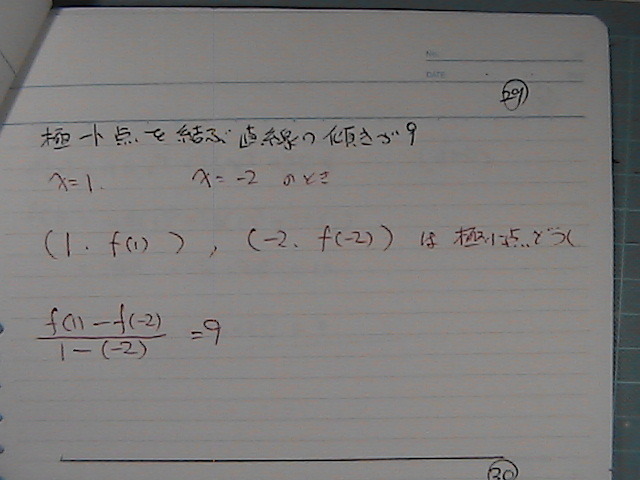 NO.
DATE
29
極小点を結ぶ直線の傾きが9
x=1. x=-2 のとき
(1, f(1)), (-2, f(-2)) は 極小点
f(1)-f(-2)
1-(-2)
=9
30